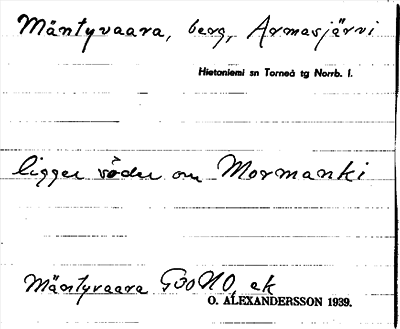 Mäntyvaara, berg, Armasjärvi
Hietaniemi sn Torneå tg Norrb. l.
ligger söder om Mormanki
Mäntyvaara GooNO, ek
O. ALEXANDERSSON 1939.